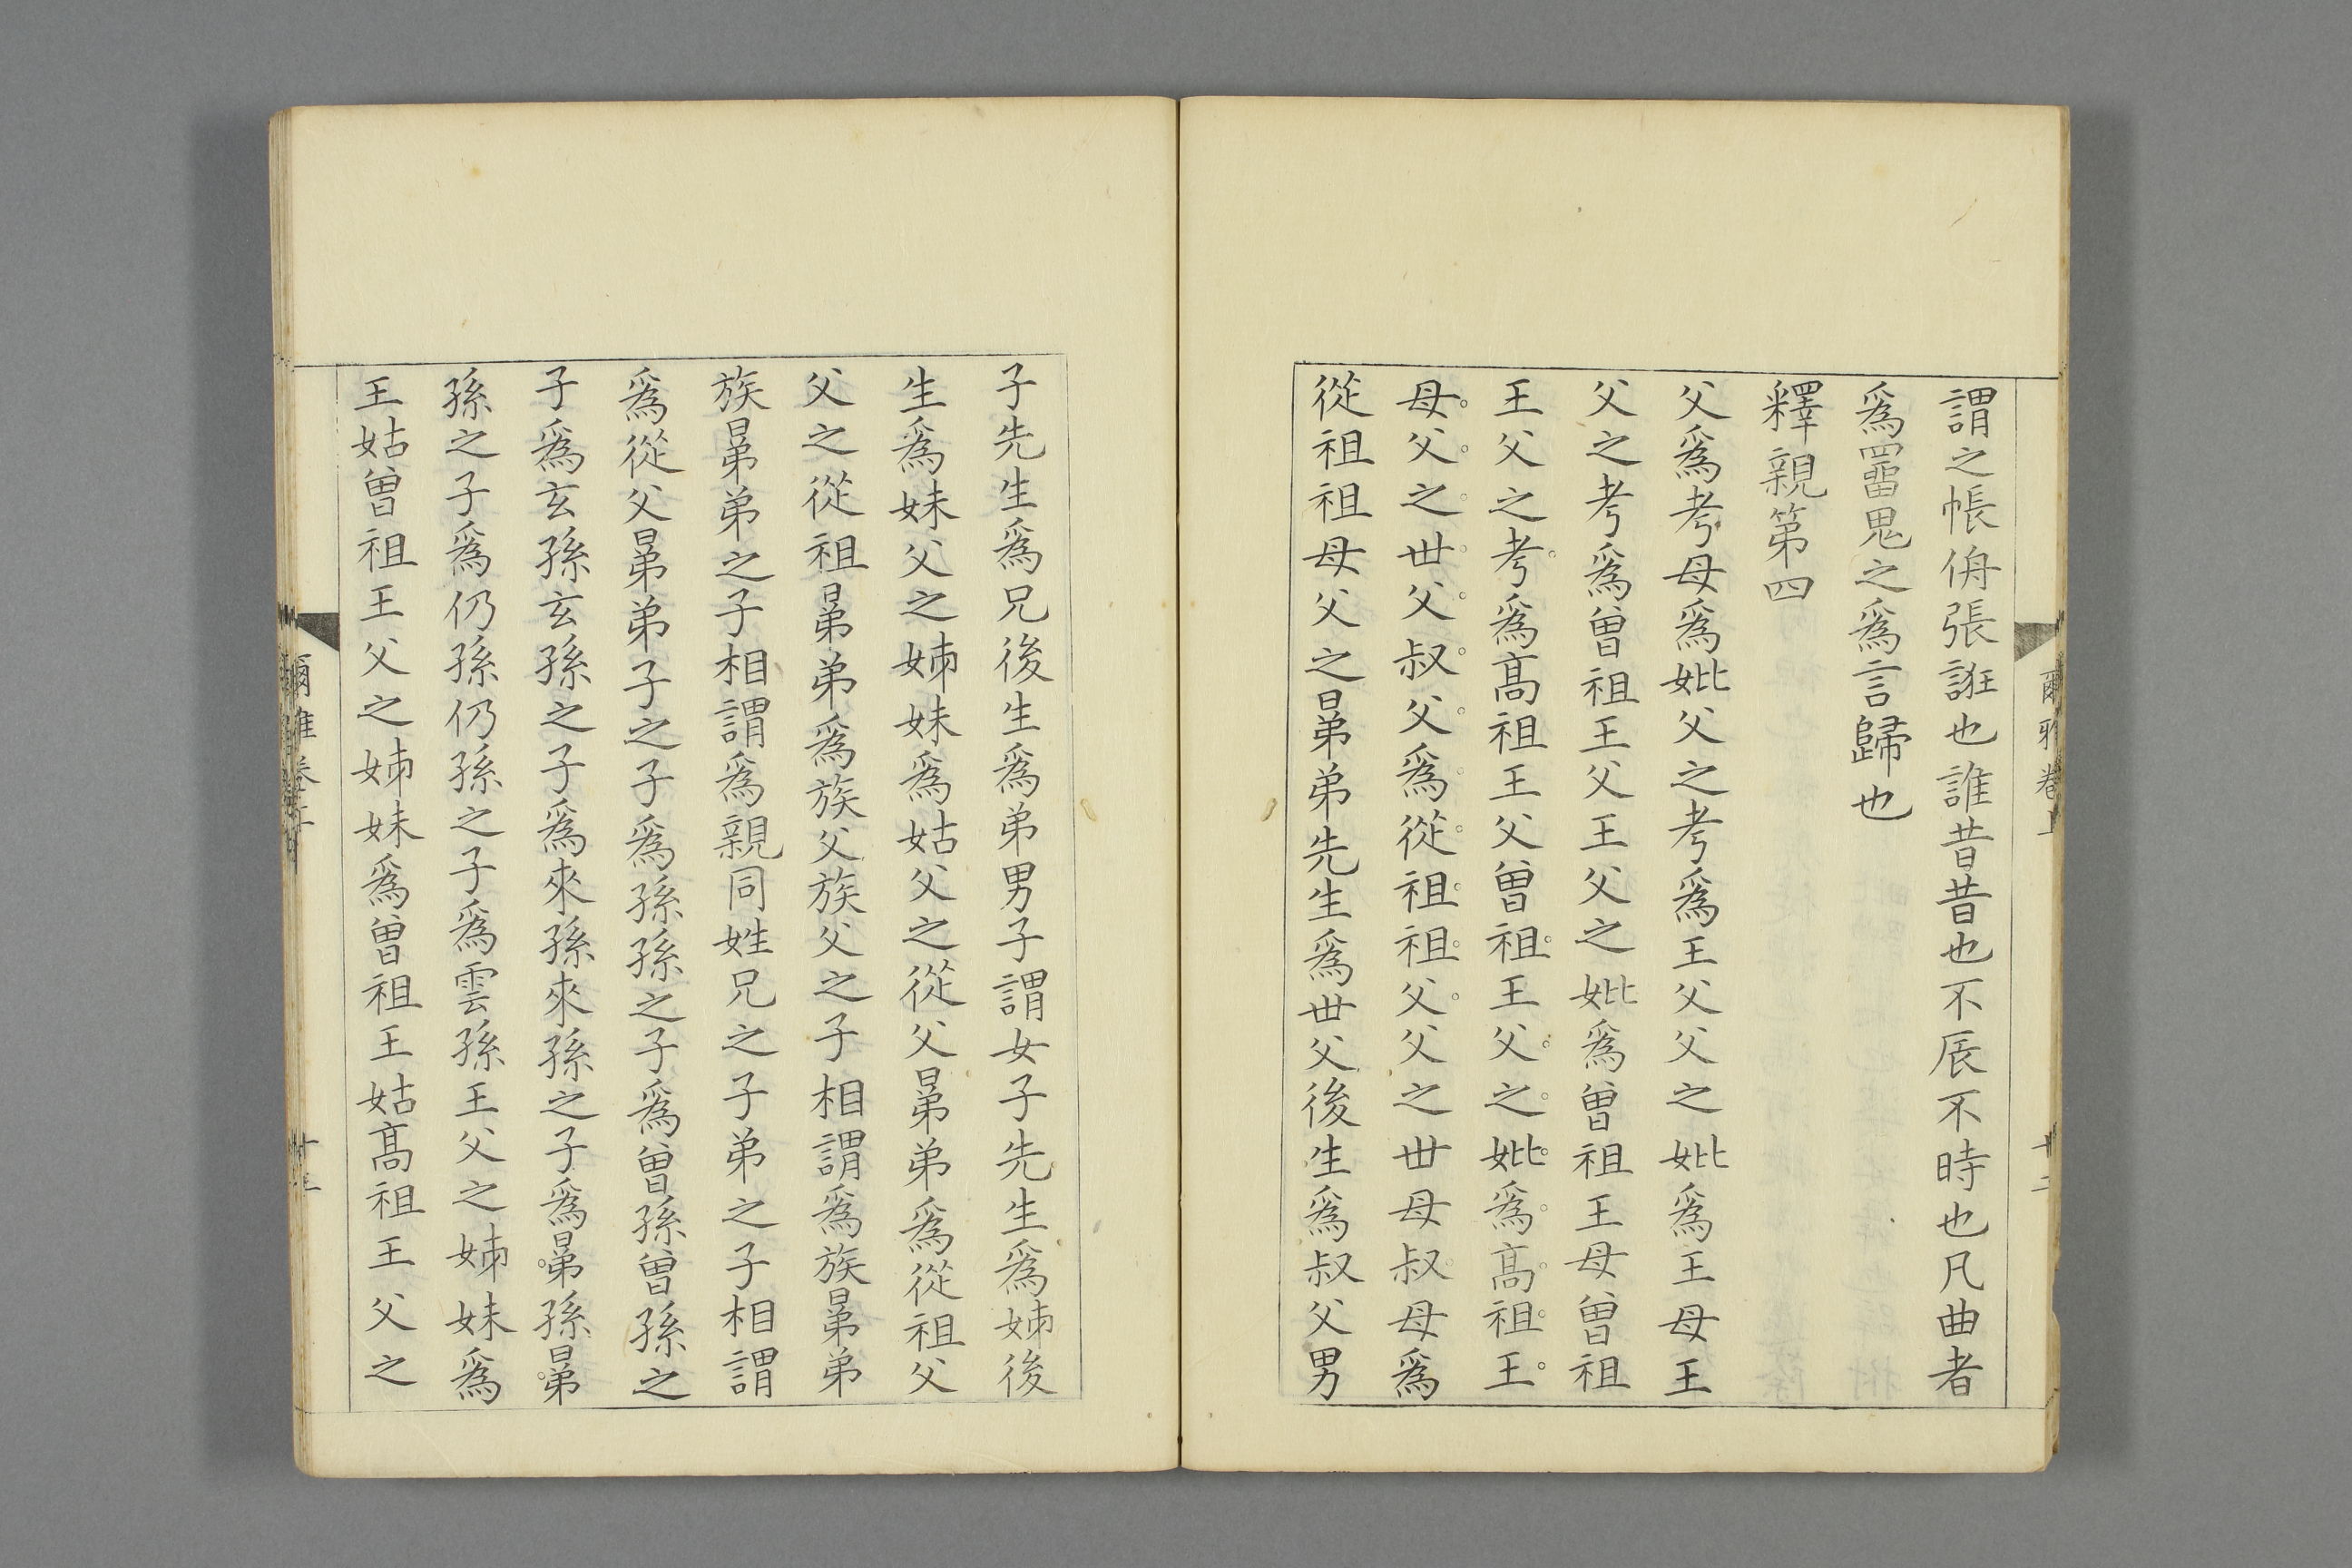 謂之帳侜張誑也誰昔昔也不辰不時也凡曲者
爲罶鬼之爲言歸也
釋親第四
父爲考母爲妣父之考爲王父父之妣爲王母王
父之考爲曾祖王父王父之妣爲曾祖王母曾祖
王父之考爲髙祖王父曾祖王父之妣爲髙祖王
母父之世父叔父爲從祖祖父父之世母叔母爲
從祖祖母父之晜弟先生爲世父後生爲叔父男
爾雅卷上
十二
子先生爲兄後生爲弟男子謂女子先生爲姊後
生爲妹父之姊妹爲姑父之從父晜弟爲從祖父
父之從祖晜弟爲族父族父之子相謂爲族晜弟
族晜弟之子相謂爲親同姓兄之子弟之子相謂
爲從父晜弟子之子爲孫孫之子爲曾孫曾孫之
子爲玄孫玄孫之子爲來孫來孫之子爲晜孫晜
孫之子爲仍孫仍孫之子爲雲孫王父之姊妹爲
王姑曾祖王父之姊妹爲曾祖王姑髙祖王父之